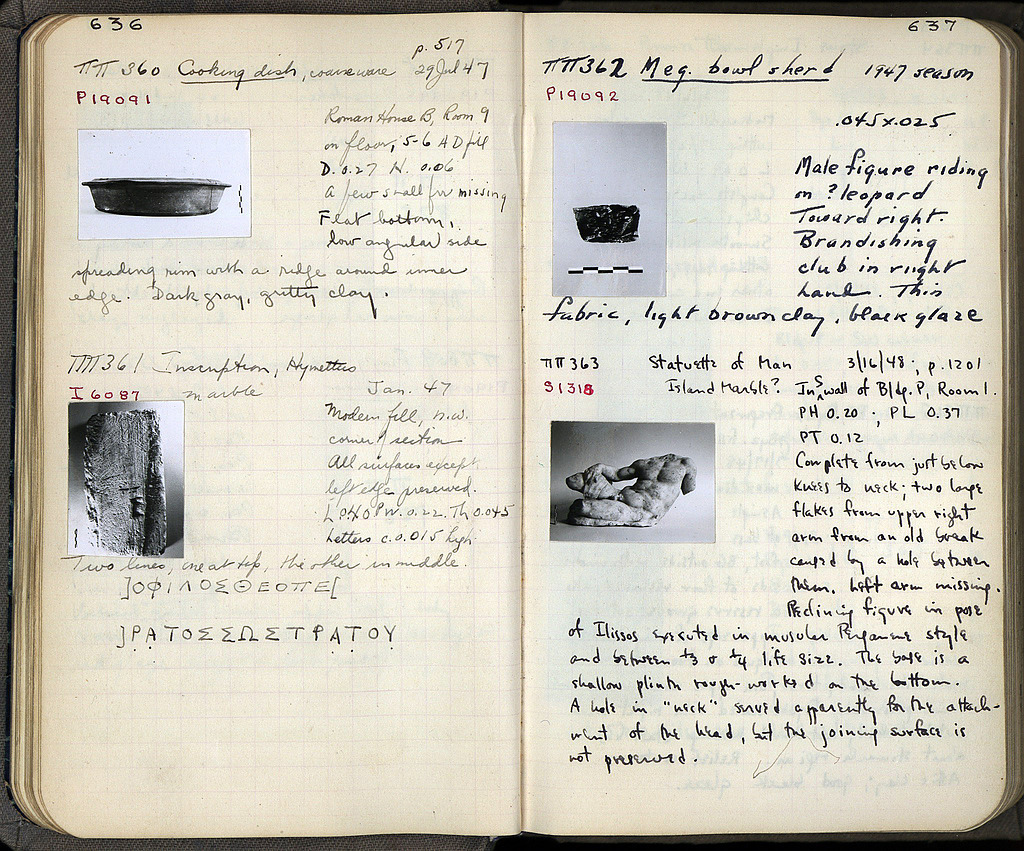 636
p. 517
ΠΠ 360 Cooking dish, coarse ware 29 Jul 47
P19091
Roman House B, Room 9
on floor, 5-6 AD fill
D. 0.27 H. 0.06
A few small missing
Flat bottom,
low angular side
spreading rim with a ridge around inner
edge. Dark gray, gritty clay.
ΠΠ 361 Inscription, Hymettus
marble
I 6087
Jan. 47
Modern fill, n.w.
corner section
All surfaces except
left edge preserved.
W. 0.22. Th 0.045
Letters c. 0.015 high.
Two lines, one at top, the other in middle.
]ΟΦΙΛΟΣΘΕΟΠΕ[
]ΡΑΤΟΣΣΩΣΤΡΑΤΟΥ
637
ΠΠ362 Meg. bowl sherd 1947 season
P19092
.045x.025
Male figure riding
on ? leopard
Toward right.
Brandishing
club in right
hand. Thin
fabric, light brown clay, black glaze
ΠΠ363 Statuette of Man 3/16/48; p. 1201
S1318
Island Marble? In S wall of Bldg. P, Room 1.
PH 0.20; PL 0.37
PT 0.12
Complete from just below
knees to neck; two large
flakes from upper right
arm from an old break
caused by a hole between
them. Left arm missing.
Reclining figure in pose
of Ilissos executed in muscular Pergamene style
and between ⅓ & ¼ life size. The base is a
shallow plinth rough-worked on the bottom.
A hole in "neck" served apparently for the attach-
ment of the head, but the joining surface is
not preserved.